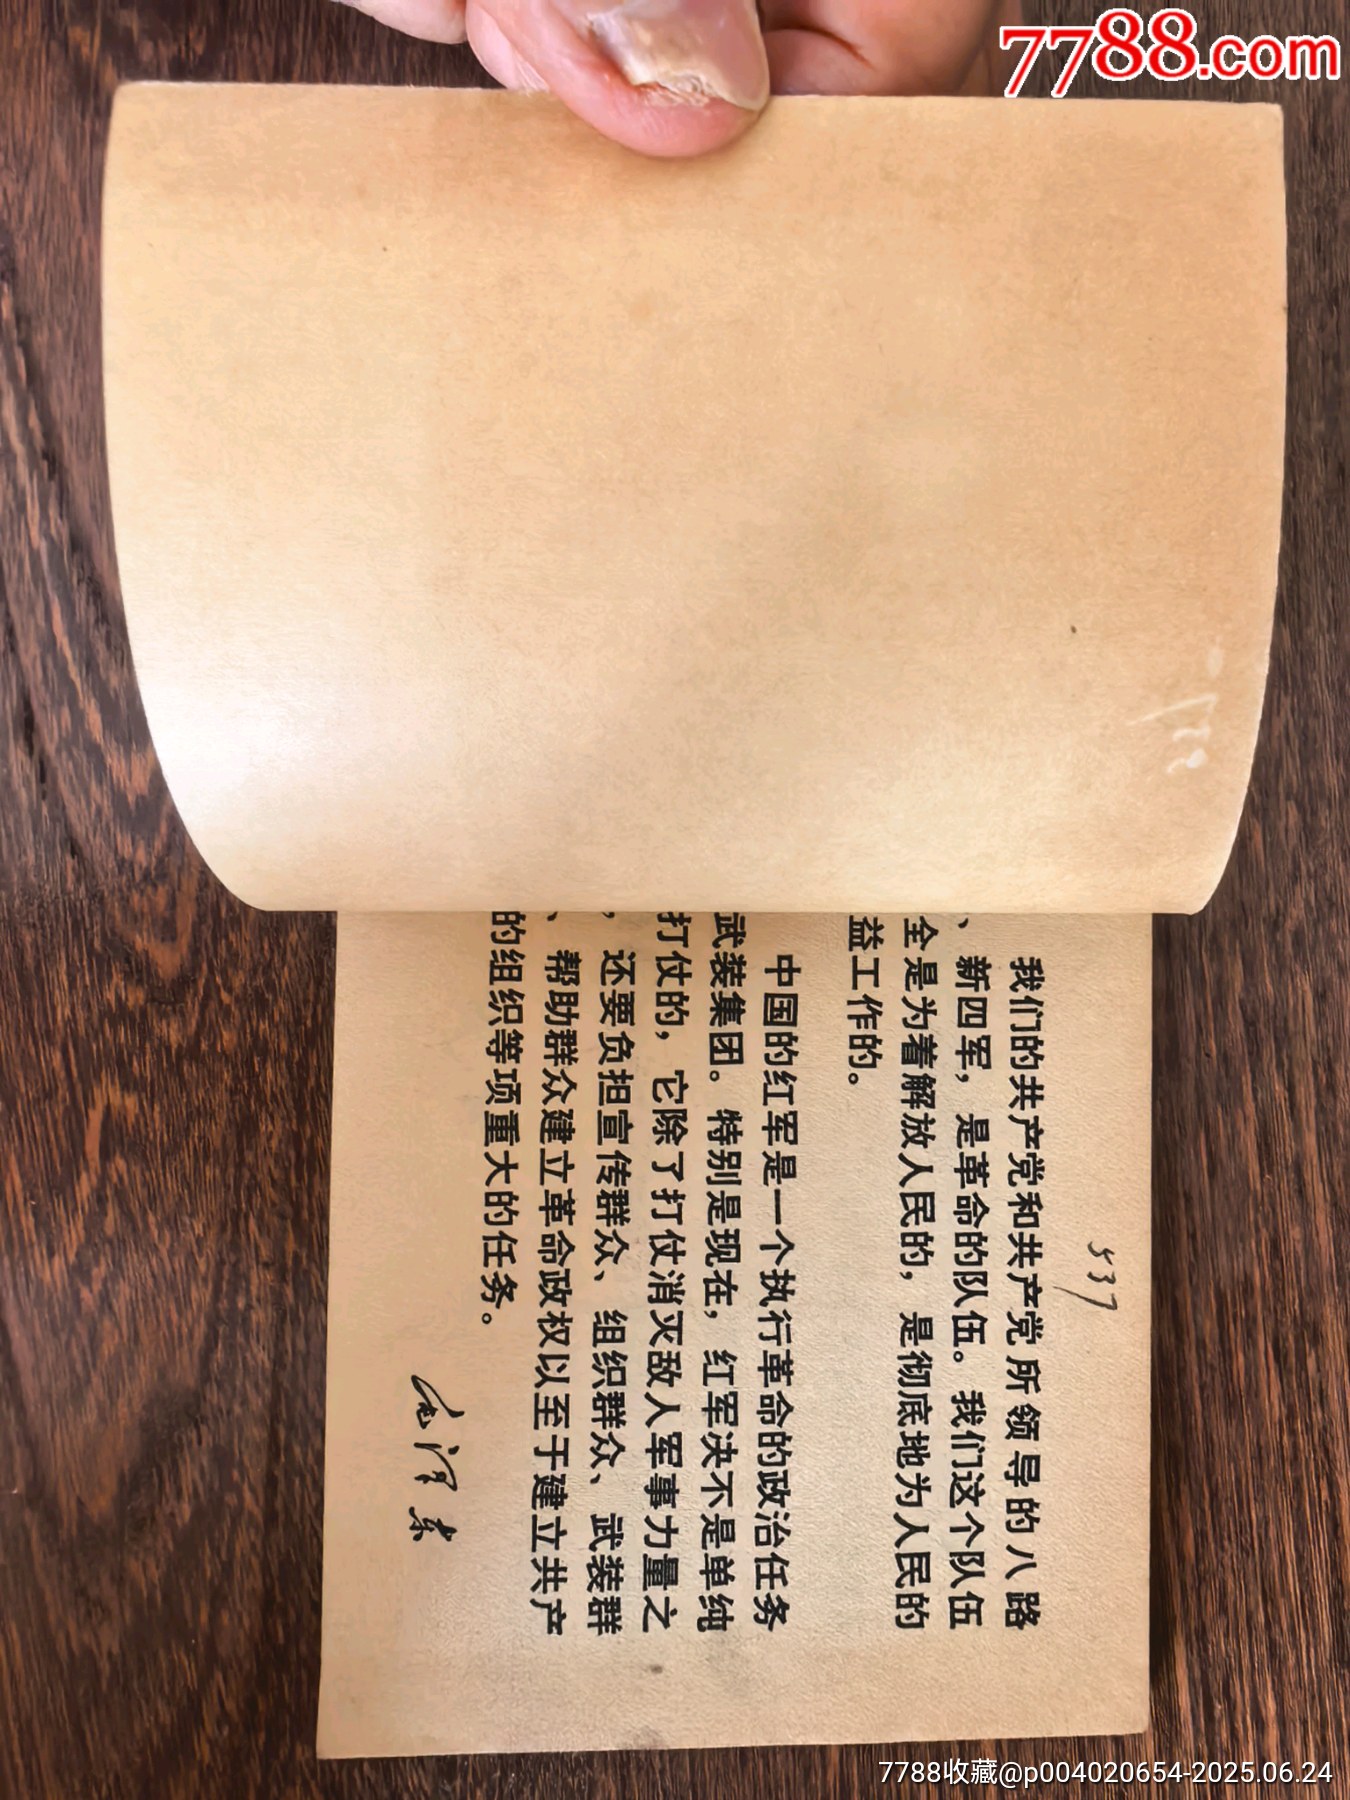 7788.com
537
我们的共产党和共产党所领导的八路
、新四军，是革命的队伍。我们这个队伍
全是为着解放人民的，是彻底地为人民的
益工作的。
中国的红军是一个执行革命的政治任务
武装集团。特别是现在，红军决不是单纯
打仗的，它除了打仗消灭敌人军事力量之
，还要负担宣传群众、组织群众、武装群
、帮助群众建立革命政权以至于建立共产
的组织等项重大的任务。
毛泽东
7788收藏@p004020654-2025.06.24